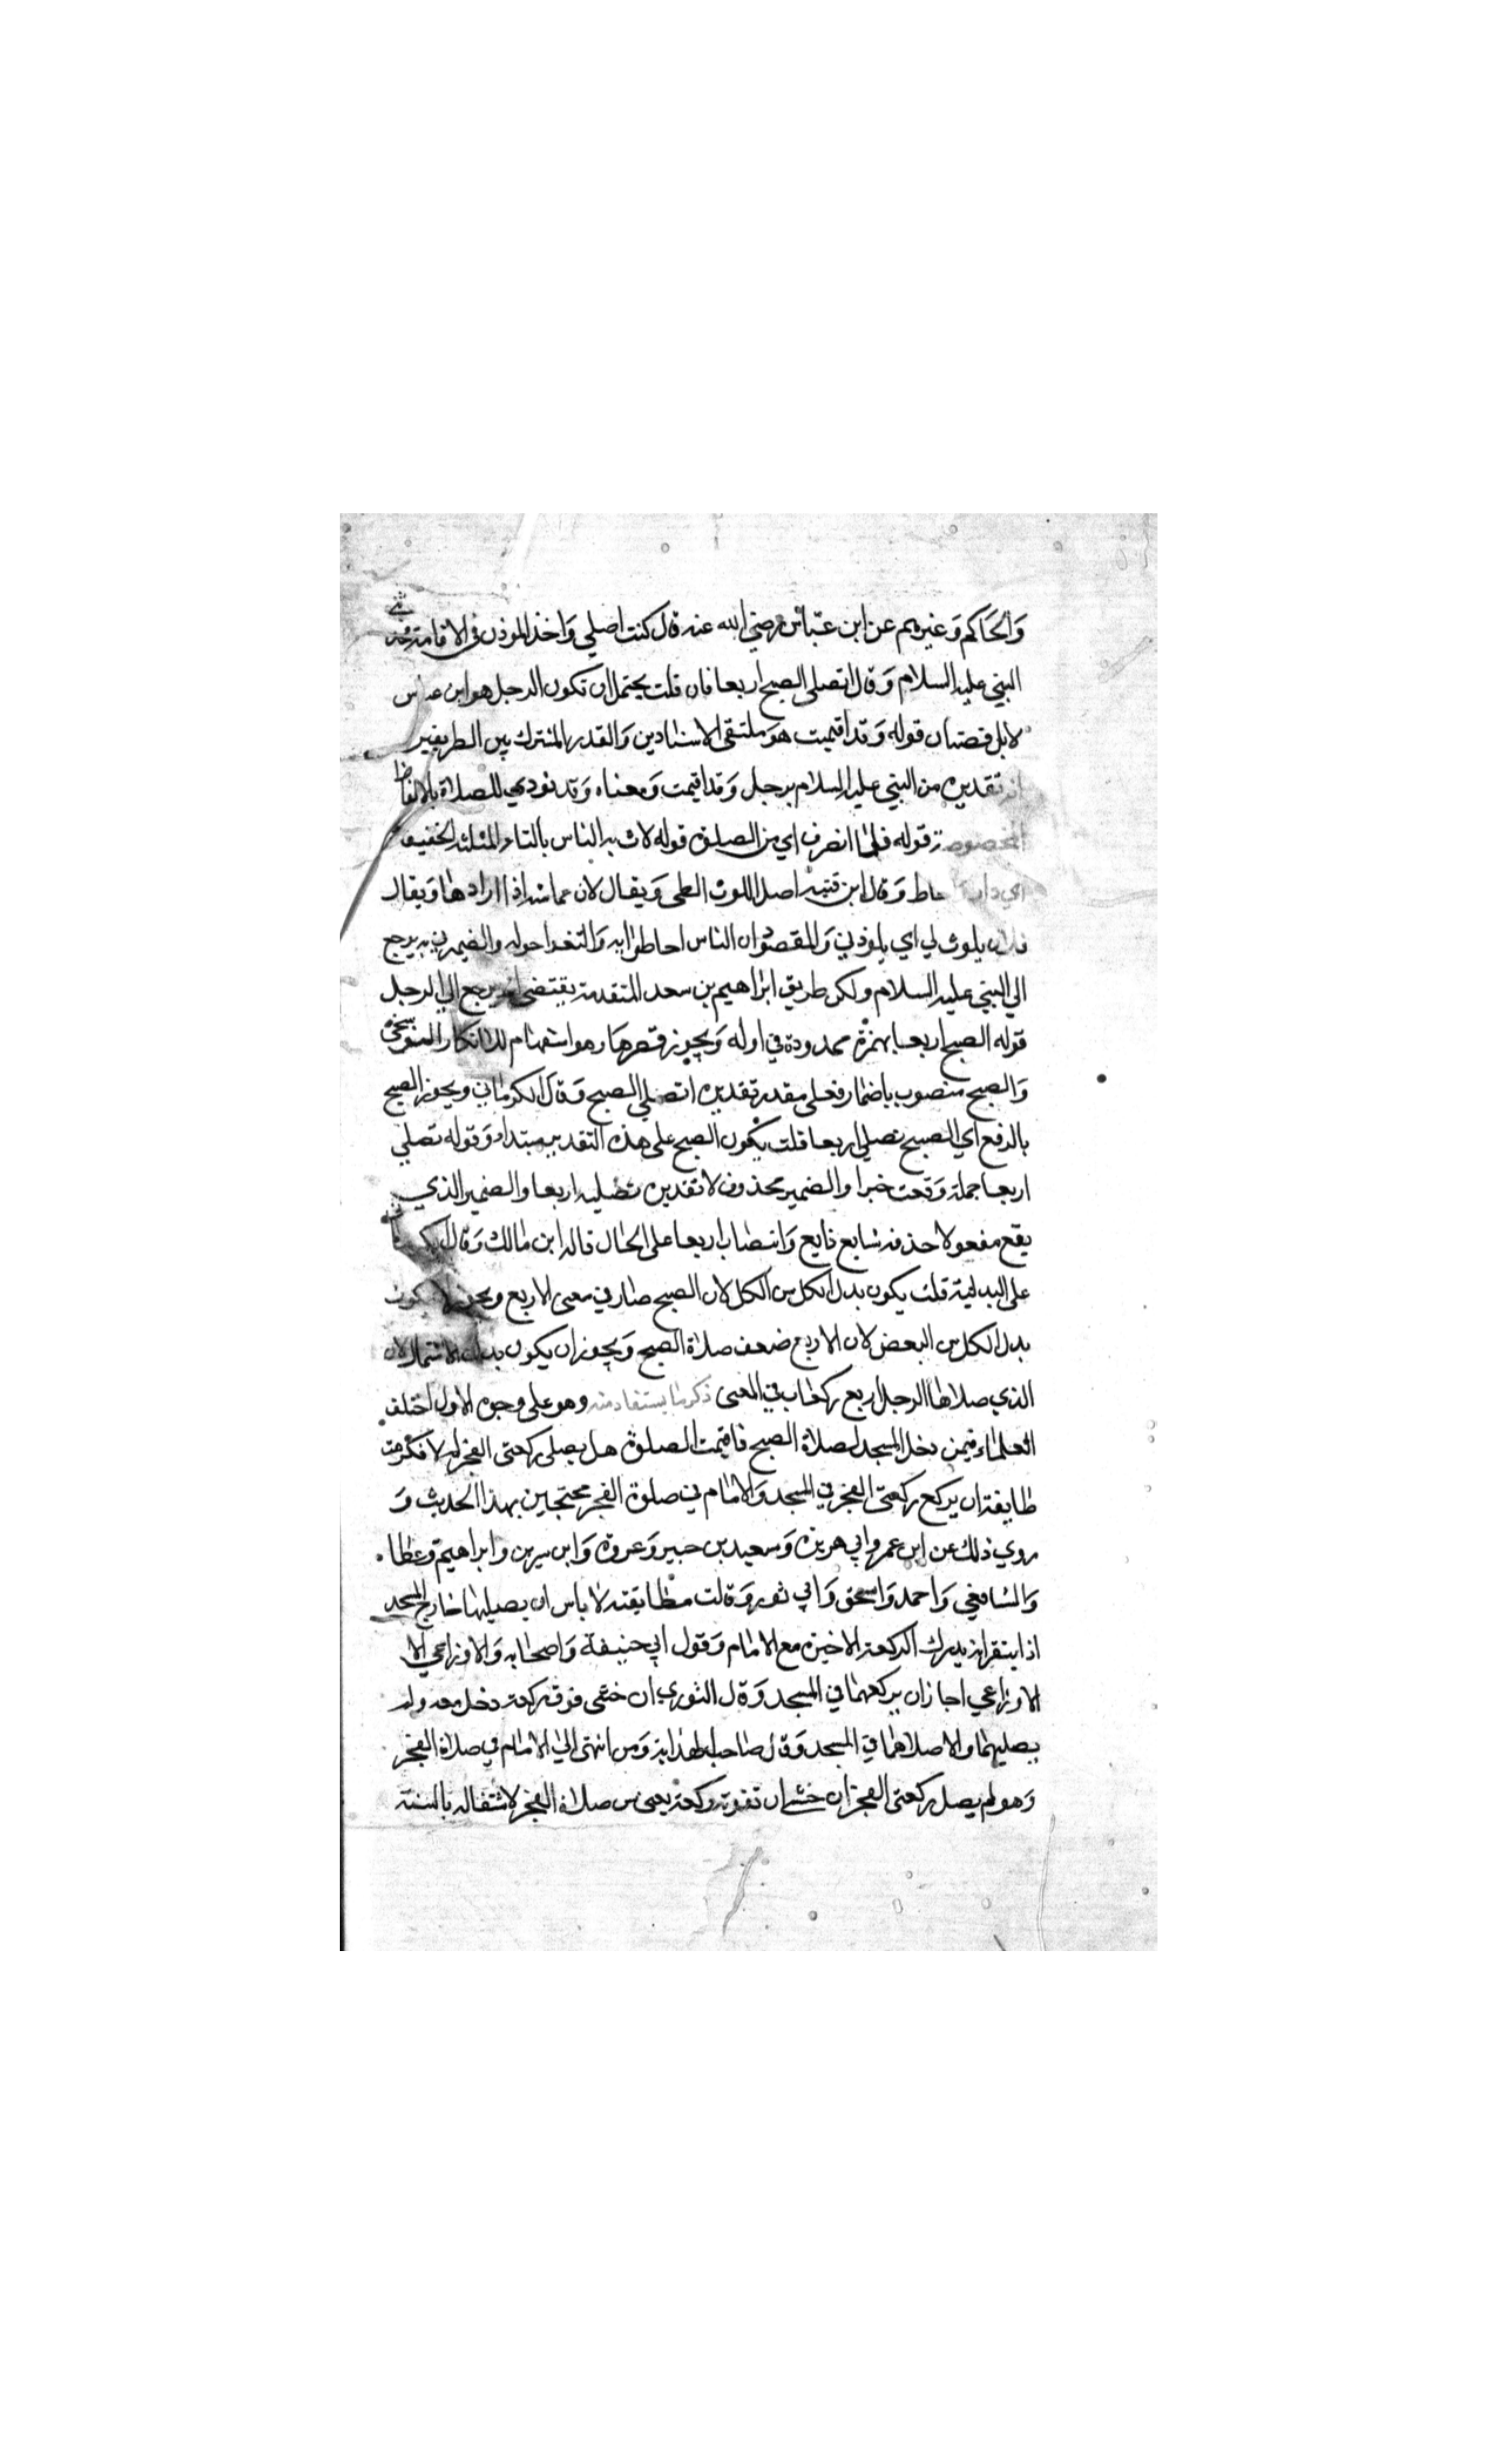 وَالحَاكم وَغيرهم عن ابن عبّاس رضي الله عنه قال كنت اصلي وَاخذ المؤذن في الاقامة فجذبني
النبي عليه السلام وَقال اتصلى الصبح اربعا فان قلت يحتمل ان تكون الرجل هو ابن عباس
لا بل قضتان قوله وَقد اقيمت هو ملتقى الاسنادين وَالقدر المشترك بين الطريقين
اذ تقديره من النبي عليه السلام برجل وَقد اقيمت وَمعناه وَقد نودي للصلاة بالالفاظ
المخصوصة قوله فلما انصرف اي من الصلوة قوله لاث به الناس بالثاء المثلثة الخفيفة
اي دار حاط وَقال ابن قتيبة اصل اللوث الطى وَيقال لاث عمامته اذا ارادها وَيقال
فلان يلوث لي اي يلوذ بي وَالمقصود ان الناس احاطوا به وَالتفوا حوله والضمير في به يرجع
الي النبي عليه السلام ولكن طريق ابراهيم بن سعد المتقدمة يقتضي انه يرجع الي الرجل
قوله الصبح اربعا بهمزة ممدودة في اوله وَيجوز قصرها وهو استفهام للانكار التوبيخي
وَالصبح منصوب باضمار فعل مقدر تقديره اتصلي الصبح وَقال الكرماني ويجوز الصبح
بالرفع اي الصبح تصلي اربعا قلت يكون الصبح على هذه التقدير مبتداء وَقوله تصلي
اربعا جملة وَقعت خبرا والضمير محذوف لا تقديره تصليه اربعا والضمير الذي
يقع مفعولا حذفه شايع ذايع وَانتصاب اربعا على الحال قاله ابن مالك وَقال
على البدلية قلت يكون بدل الكل من الكل لان الصبح صار في معنى الاربع ويجوز ان يكون
بدل الكل من البعض لان الاربع ضعف صلاة الصبح وَيجوز ان يكون بدل الاشتمال لان
الذي صلاها الرجل اربع ركعات في المعنى ذكر ما يستفاد منه وهو على وجوه الاول اختلف
العلماء فيمن دخل المسجد لصلاة الصبح فاقيمت الصلوة هل يصلى ركعتى الفجر ام لا فكرهت
طايفة ان يركع ركعتى الفجر في المسجد وَالامام في صلوة الفجر محتجين بهذا الحديث وَ
روي ذلك عن ابن عمر وابي هريرة وَسعيد بن جبير وَعروة وَابن سيرين وابراهيم وعطا
وَالشافعي وَاحمد وَاسحق وَابي ثور وَقالت طايفة لا باس ان يصليها خارج المسجد
اذا يتقن انه يدرك الركعة الاخيرة مع الامام وَقول ابي حنيفة وَاصحابه وَالاوزاعي الا
الاوزاعي اجاز ان يركعهما في المسجد وَقال الثوري ان خشى فوت ركعة دخل معه ولم
يصليهما والا صلاهما في المسجد وَقال صاحب الهداية وَمن انتهى الي الامام في صلاة الفجر
وَهو لم يصل ركعتى الفجر ان خشي ان تفوته ركعة يعنى من صلاة الفجر لاشتغاله بالسنة